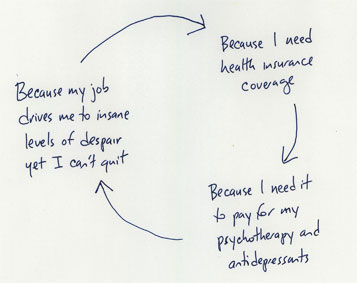 Because my job
drives me to insane
levels of despair
yet I can't quit
Because I need
health insurance
coverage
Because I need it
to pay for my
psychotherapy and
antidepressants